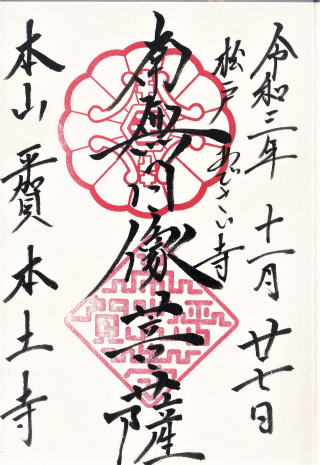 令和三年 十一月 廿七日
松戸 あぢさい寺
南無日像菩薩
本山 平賀 本土寺